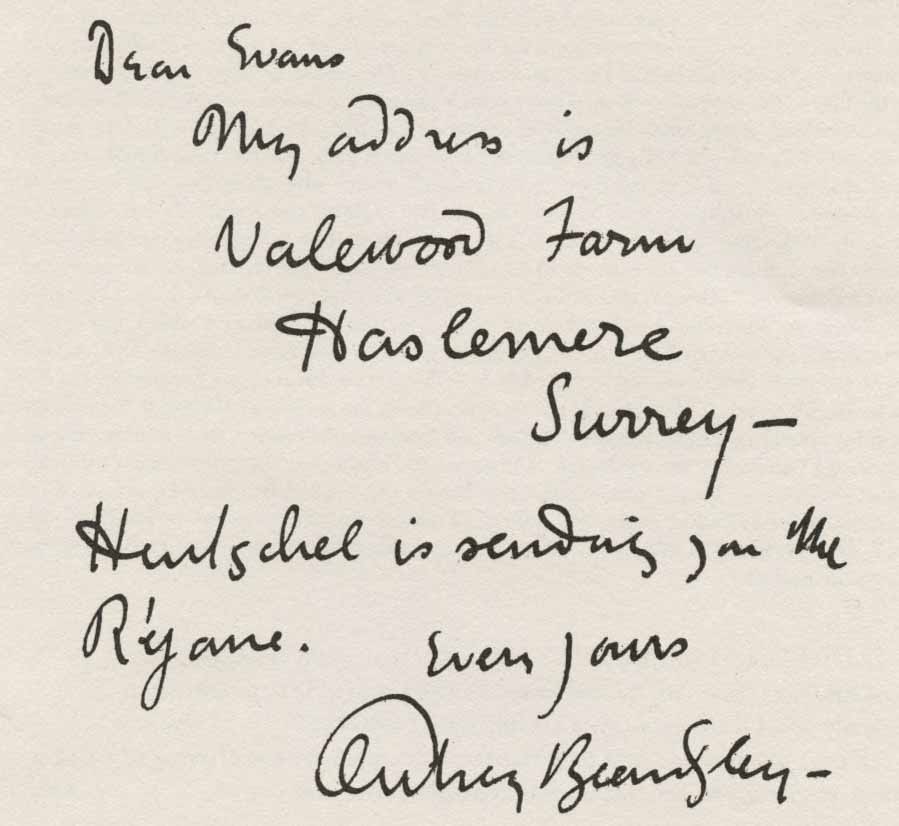 Dear Evans
My address is
Valewood Farm
Haslemere
Surrey —
Hentschel is sending you the
Réjane. Ever yours
Aubrey Beardsley —